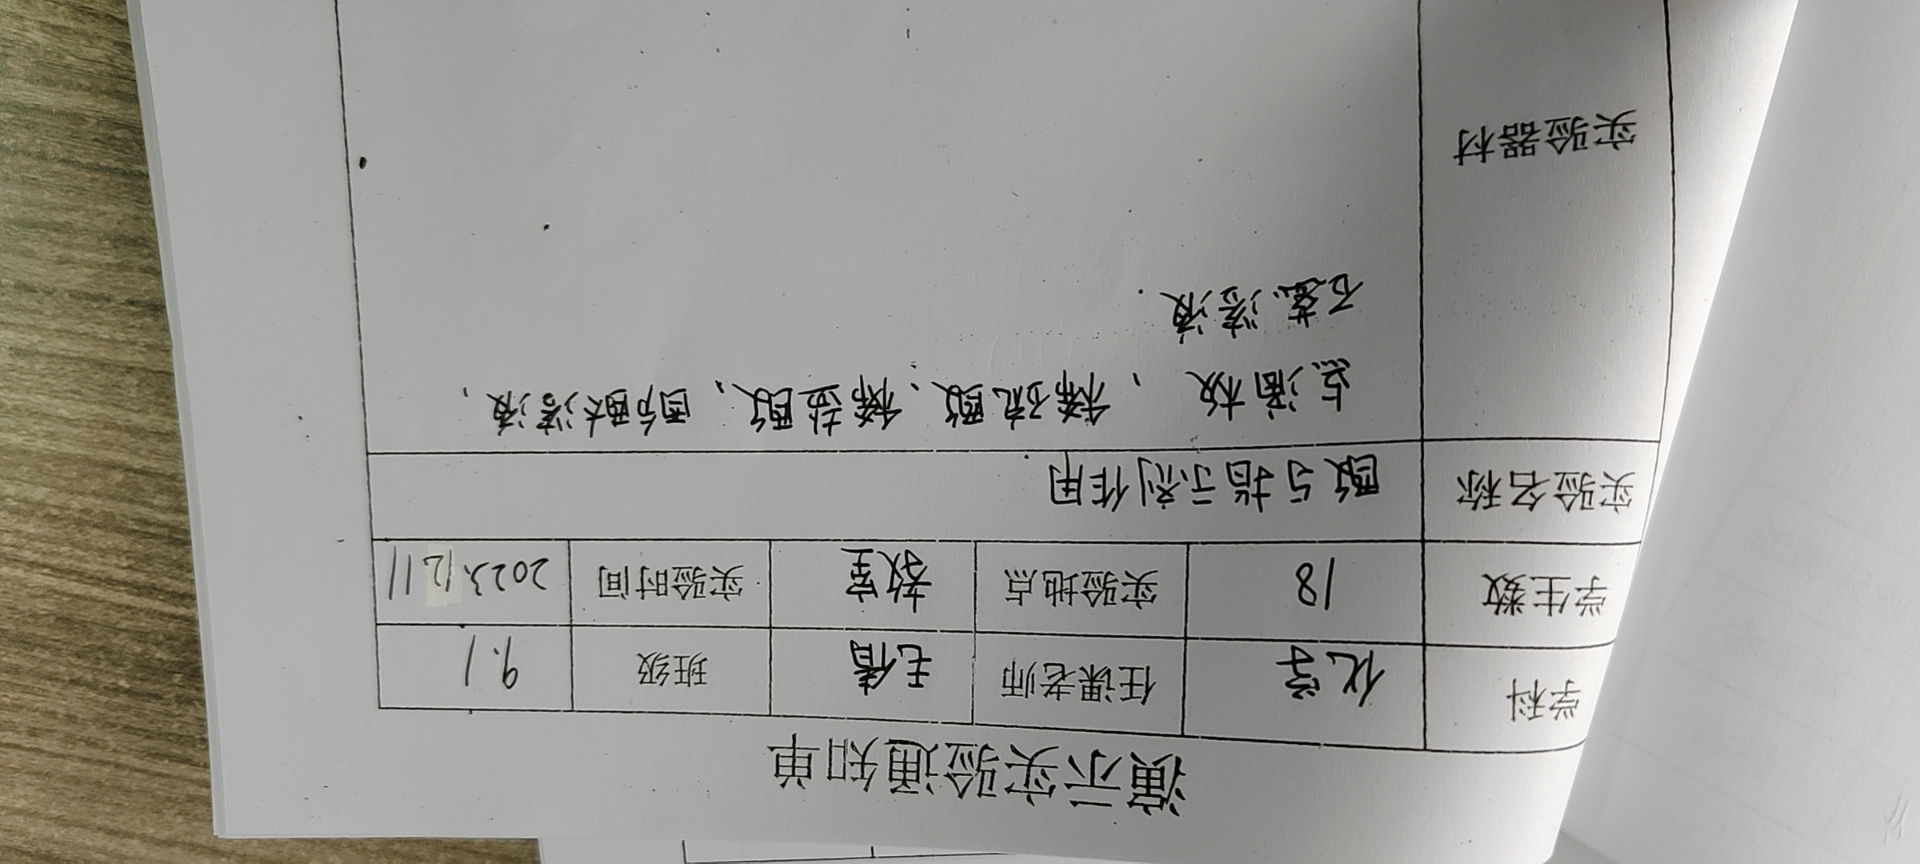 演示实验通知单
学科 化学 任课老师 毛倩 班级 9.1
学生数 18 实验地点 教室 实验时间 2023.12.11
实验名称 酸与指示剂作用
点滴板、稀硫酸、稀盐酸、酚酞溶液、
石蕊溶液.
实验器材